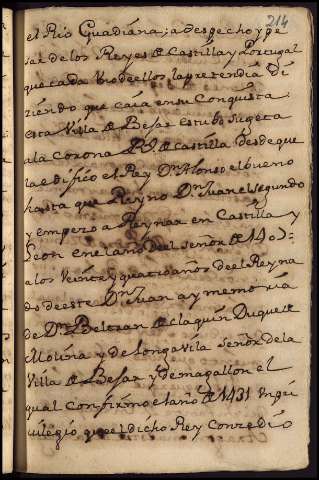 214
el Rio Guadiana; a despecho y pe
sar de los Reyes de Castilla y Portugal
que cada uno de ellos la pretendia di
ziendo que caia en su Conquista:
esta Villa de Bejar estubo sugeta
a la Corona Rl de Castilla desde que
la edifico el Rey Dn Alonso el bueno
hasta que Reyno Dn Juan el segundo
y empezo a Reynar en Castilla y
Leon en el año del señor de 1407-
a los Veinte y quatro años de el Reyna
do de este Dn Juan ay memoria
de Dn Beltran de Claquin Duque de
Molina y de Longavila Señor de la
Villa de Bejar y de magallon el
qual Confirmo el año de 1431 un pri
uilegio que el dicho Rey Conzedio